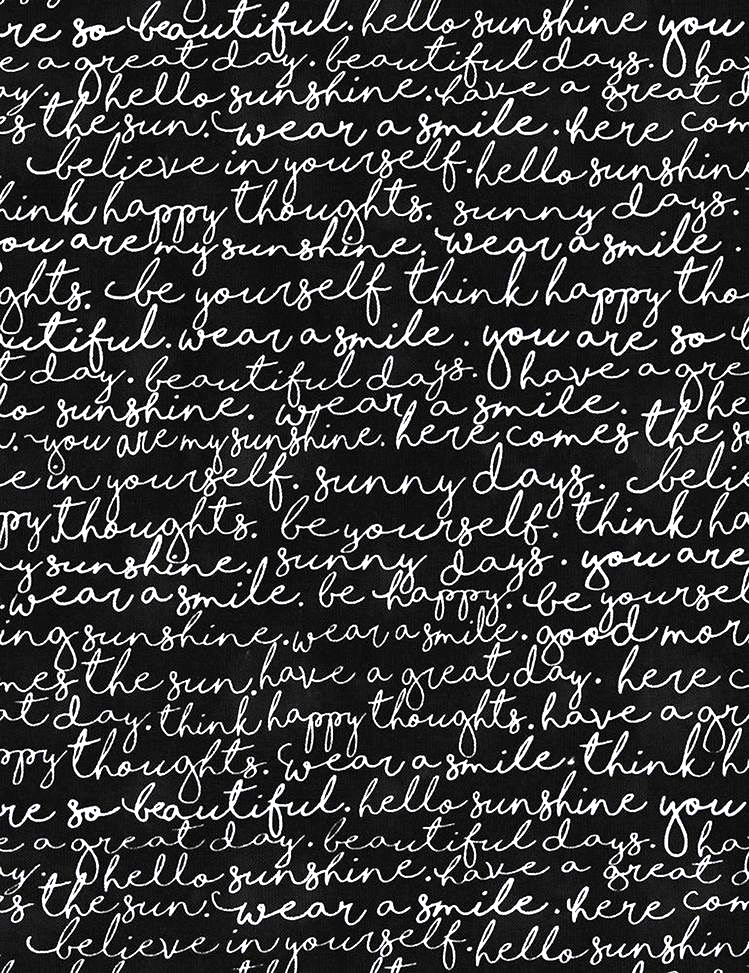 re so beautiful. hello sunshine you
e a great day. beautiful days. ha
ay. hello sunshine. have a great d
es the sun. wear a smile. here com
believe in yourself. hello sunshin
hink happy thoughts. sunny days.
ou are my sunshine. wear a smile.
ghts. be yourself think happy tho
utiful. wear a smile. you are so b
t day. beautiful days. have a gre
lo sunshine. wear a smile. he
. you are my sunshine. here comes the s
e in yourself. sunny days. belie
py thoughts. be yourself. think ha
y sunshine. sunny days. you are
. wear a smile. be happy. be yoursel
ing sunshine. wear a smile. good mor
mes the sun. have a great day. here c
at day. think happy thoughts. have a gr
ppy thoughts. wear a smile. think h
re so beautiful. hello sunshine you
e a great day. beautiful days. ha
ay. hello sunshine. have a great d
es the sun. wear a smile. here com
believe in yourself. hello sunshin